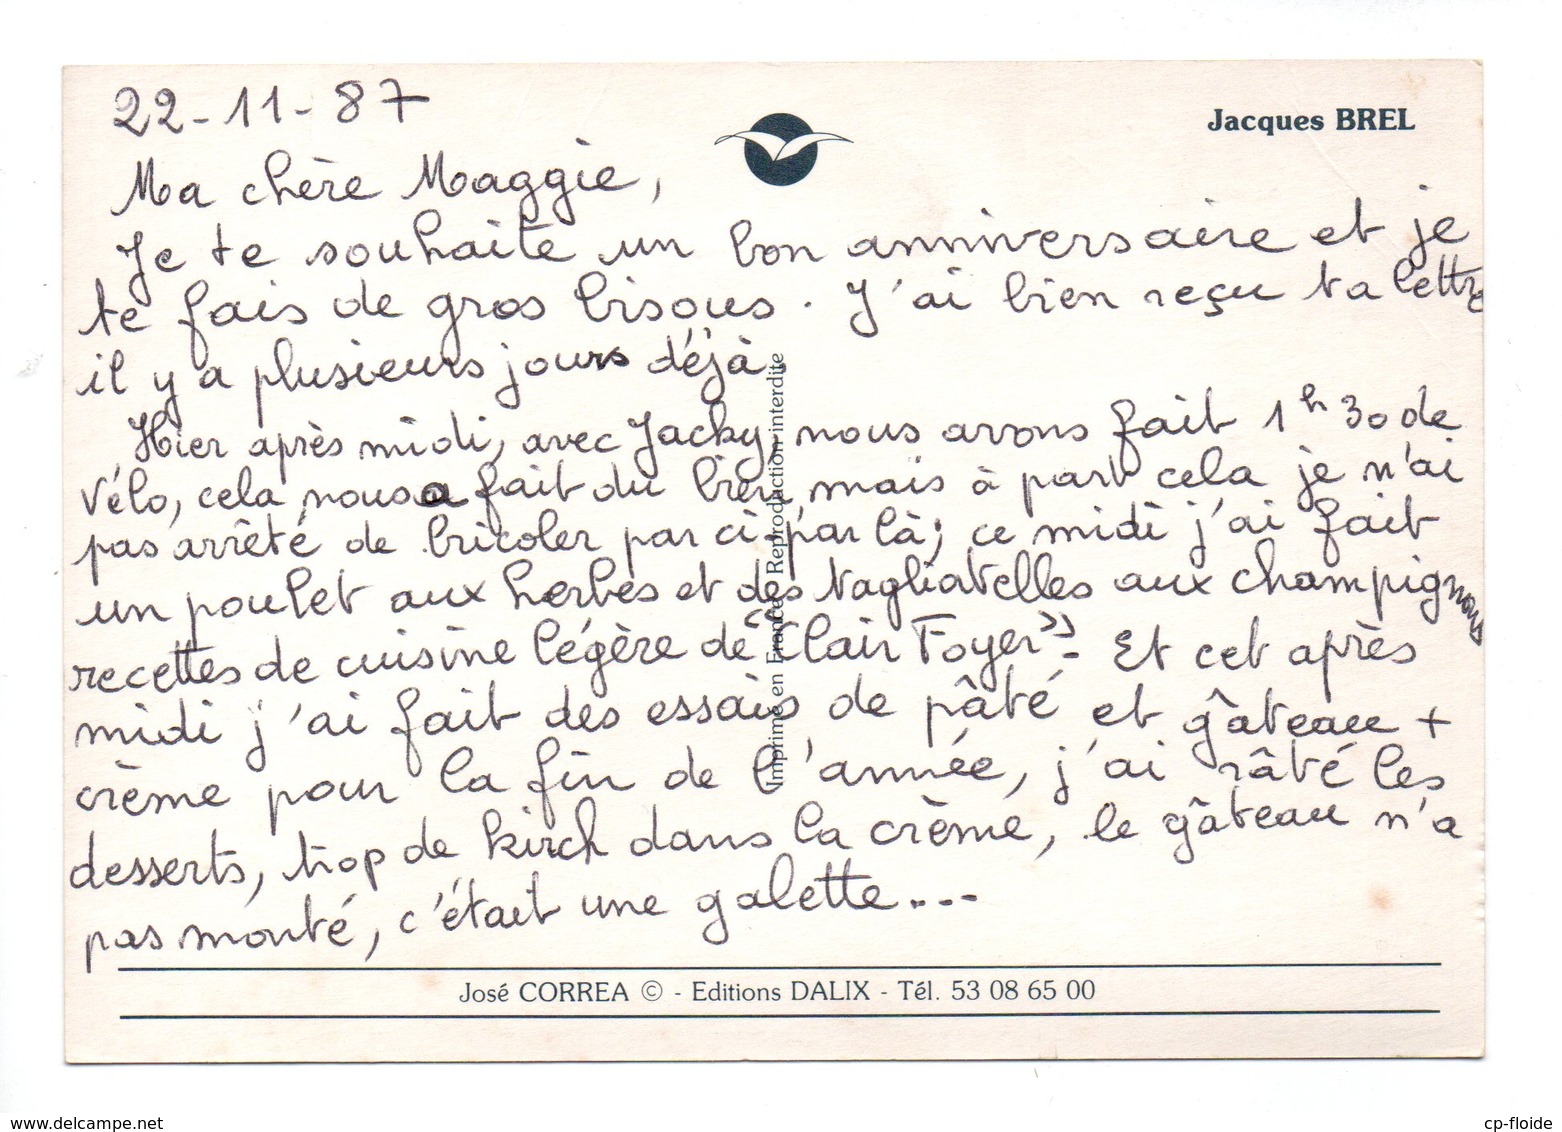 22-11-87
Jacques BREL
Ma chère Maggie,
Je te souhaite un bon anniversaire et je
te fais de gros bisous. J'ai bien reçu ta lettre
il y a plusieurs jours déjà.
Hier après midi, avec Jacky, nous avons fait 1h30 de
vélo, cela nous a fait du bien, mais à part cela je n'ai
pas arrêté de bricoler par ci-par là; ce midi j'ai fait
un poulet aux herbes et des tagliatelles aux champignons
recettes de cuisine légère de "Clair Foyer". Et cet après
midi j'ai fait des essais de pâté et gâteau +
crème pour la fin de l'année, j'ai râté les
desserts, trop de kirch dans la crème, le gâteau n'a
pas monté, c'était une galette....
Imprimé en France - Reproduction interdite
José CORREA © - Editions DALIX - Tél. 53 08 65 00
www.delcampe.net
cp-floide